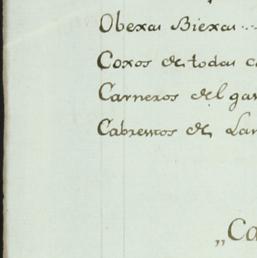 Obexa Biexa...
Coxos de todas
Carneros del gan
Cabrettos de Lan
„Ca